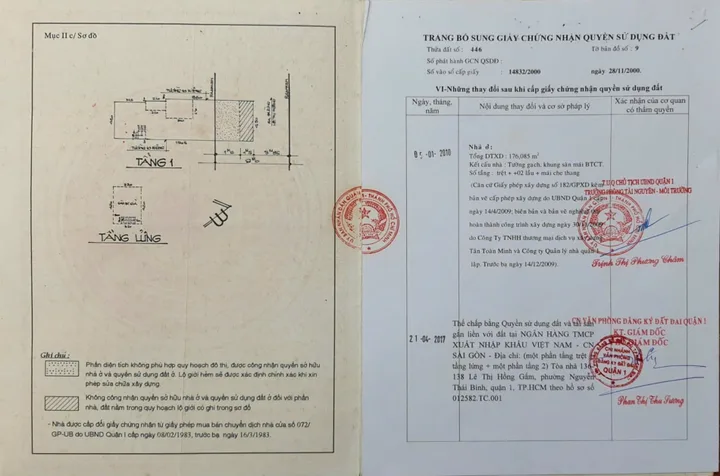 Mục II c/ Sơ đồ
TẦNG 1
TẦNG LỬNG
Ghi chú :
Phần diện tích không phù hợp quy hoạch đô thị, được công nhận quyền sở hữu
nhà ở và quyền sử dụng đất ở. Lộ giới hẻm sẽ được xác định chính xác khi xin
phép sửa chữa xây dựng.
Không công nhận quyền sở hữu nhà ở và quyền sử dụng đất ở đối với phần
nhà, đất nằm trong quy hoạch lộ giới có ghi trong sơ đồ
- Nhà được cấp đổi giấy chứng nhận từ giấy phép mua bán chuyển dịch nhà cửa số 072/
GP-UB do UBND Quận I cấp ngày 08/02/1983, trước bạ ngày 16/3/1983.
TRANG BỔ SUNG GIẤY CHỨNG NHẬN QUYỀN SỬ DỤNG ĐẤT
Thửa đất số : 446 Tờ bản đồ số : 9
Số phát hành GCN QSDĐ :
Số vào sổ cấp giấy : 14832/2000 ngày 28/11/2000.
VI-Những thay đổi sau khi cấp giấy chứng nhận quyền sử dụng đất
Ngày, tháng, năm
Nội dung thay đổi và cơ sở pháp lý
Xác nhận của cơ quan có thẩm quyền
-01-2010
Nhà ở:
Tổng DTXD : 176,085 m²
Kết cấu nhà : Tường gạch, khung sàn mái BTCT.
Số tầng : trệt + +02 lầu + mái che thang
(Căn cứ Giấy phép xây dựng số 182/GPXD kèm
bản vẽ cấp phép xây dựng do UBND Quận 1 cấp
ngày 14/6/2009; biên bản và bản vẽ nghiệm thu
hoàn thành công trình xây dựng ngày
do Công TNHH thương mại dịch vụ xây dựng
Tân Toàn Minh và Công ty Quản lý nhà quận 1
lập. Trước bạ ngày 14/12/2009).
TUQ CHỦ TỊCH UBND QUẬN 1
TRƯỞNG PHÒNG TÀI NGUYÊN - MÔI TRƯỜNG
Trịnh Thị Phương Châm
21-04-2017
Thế chấp bằng Quyền sử dụng đất và tài sản
gắn liền với đất tại NGÂN HÀNG TMCP
XUẤT NHẬP KHẨU VIỆT NAM - CN
SÀI GÒN - Địa chỉ: (một phần tầng trệt +
tầng lửng + một phần tầng 2) Tòa nhà 136-
138 Lê Thị Hồng Gấm, phường Nguyễn
Thái Bình, quận 1, TP.HCM theo hồ sơ số
012582.TC.001
CN VĂN PHÒNG ĐĂNG KÝ ĐẤT ĐAI QUẬN 1
KT. GIÁM ĐỐC
PHÓ GIÁM ĐỐC
CHI NHÁNH
VĂN PHÒNG
ĐĂNG KÝ ĐẤT ĐAI
QUẬN 1
Phan Thị Thu Sương